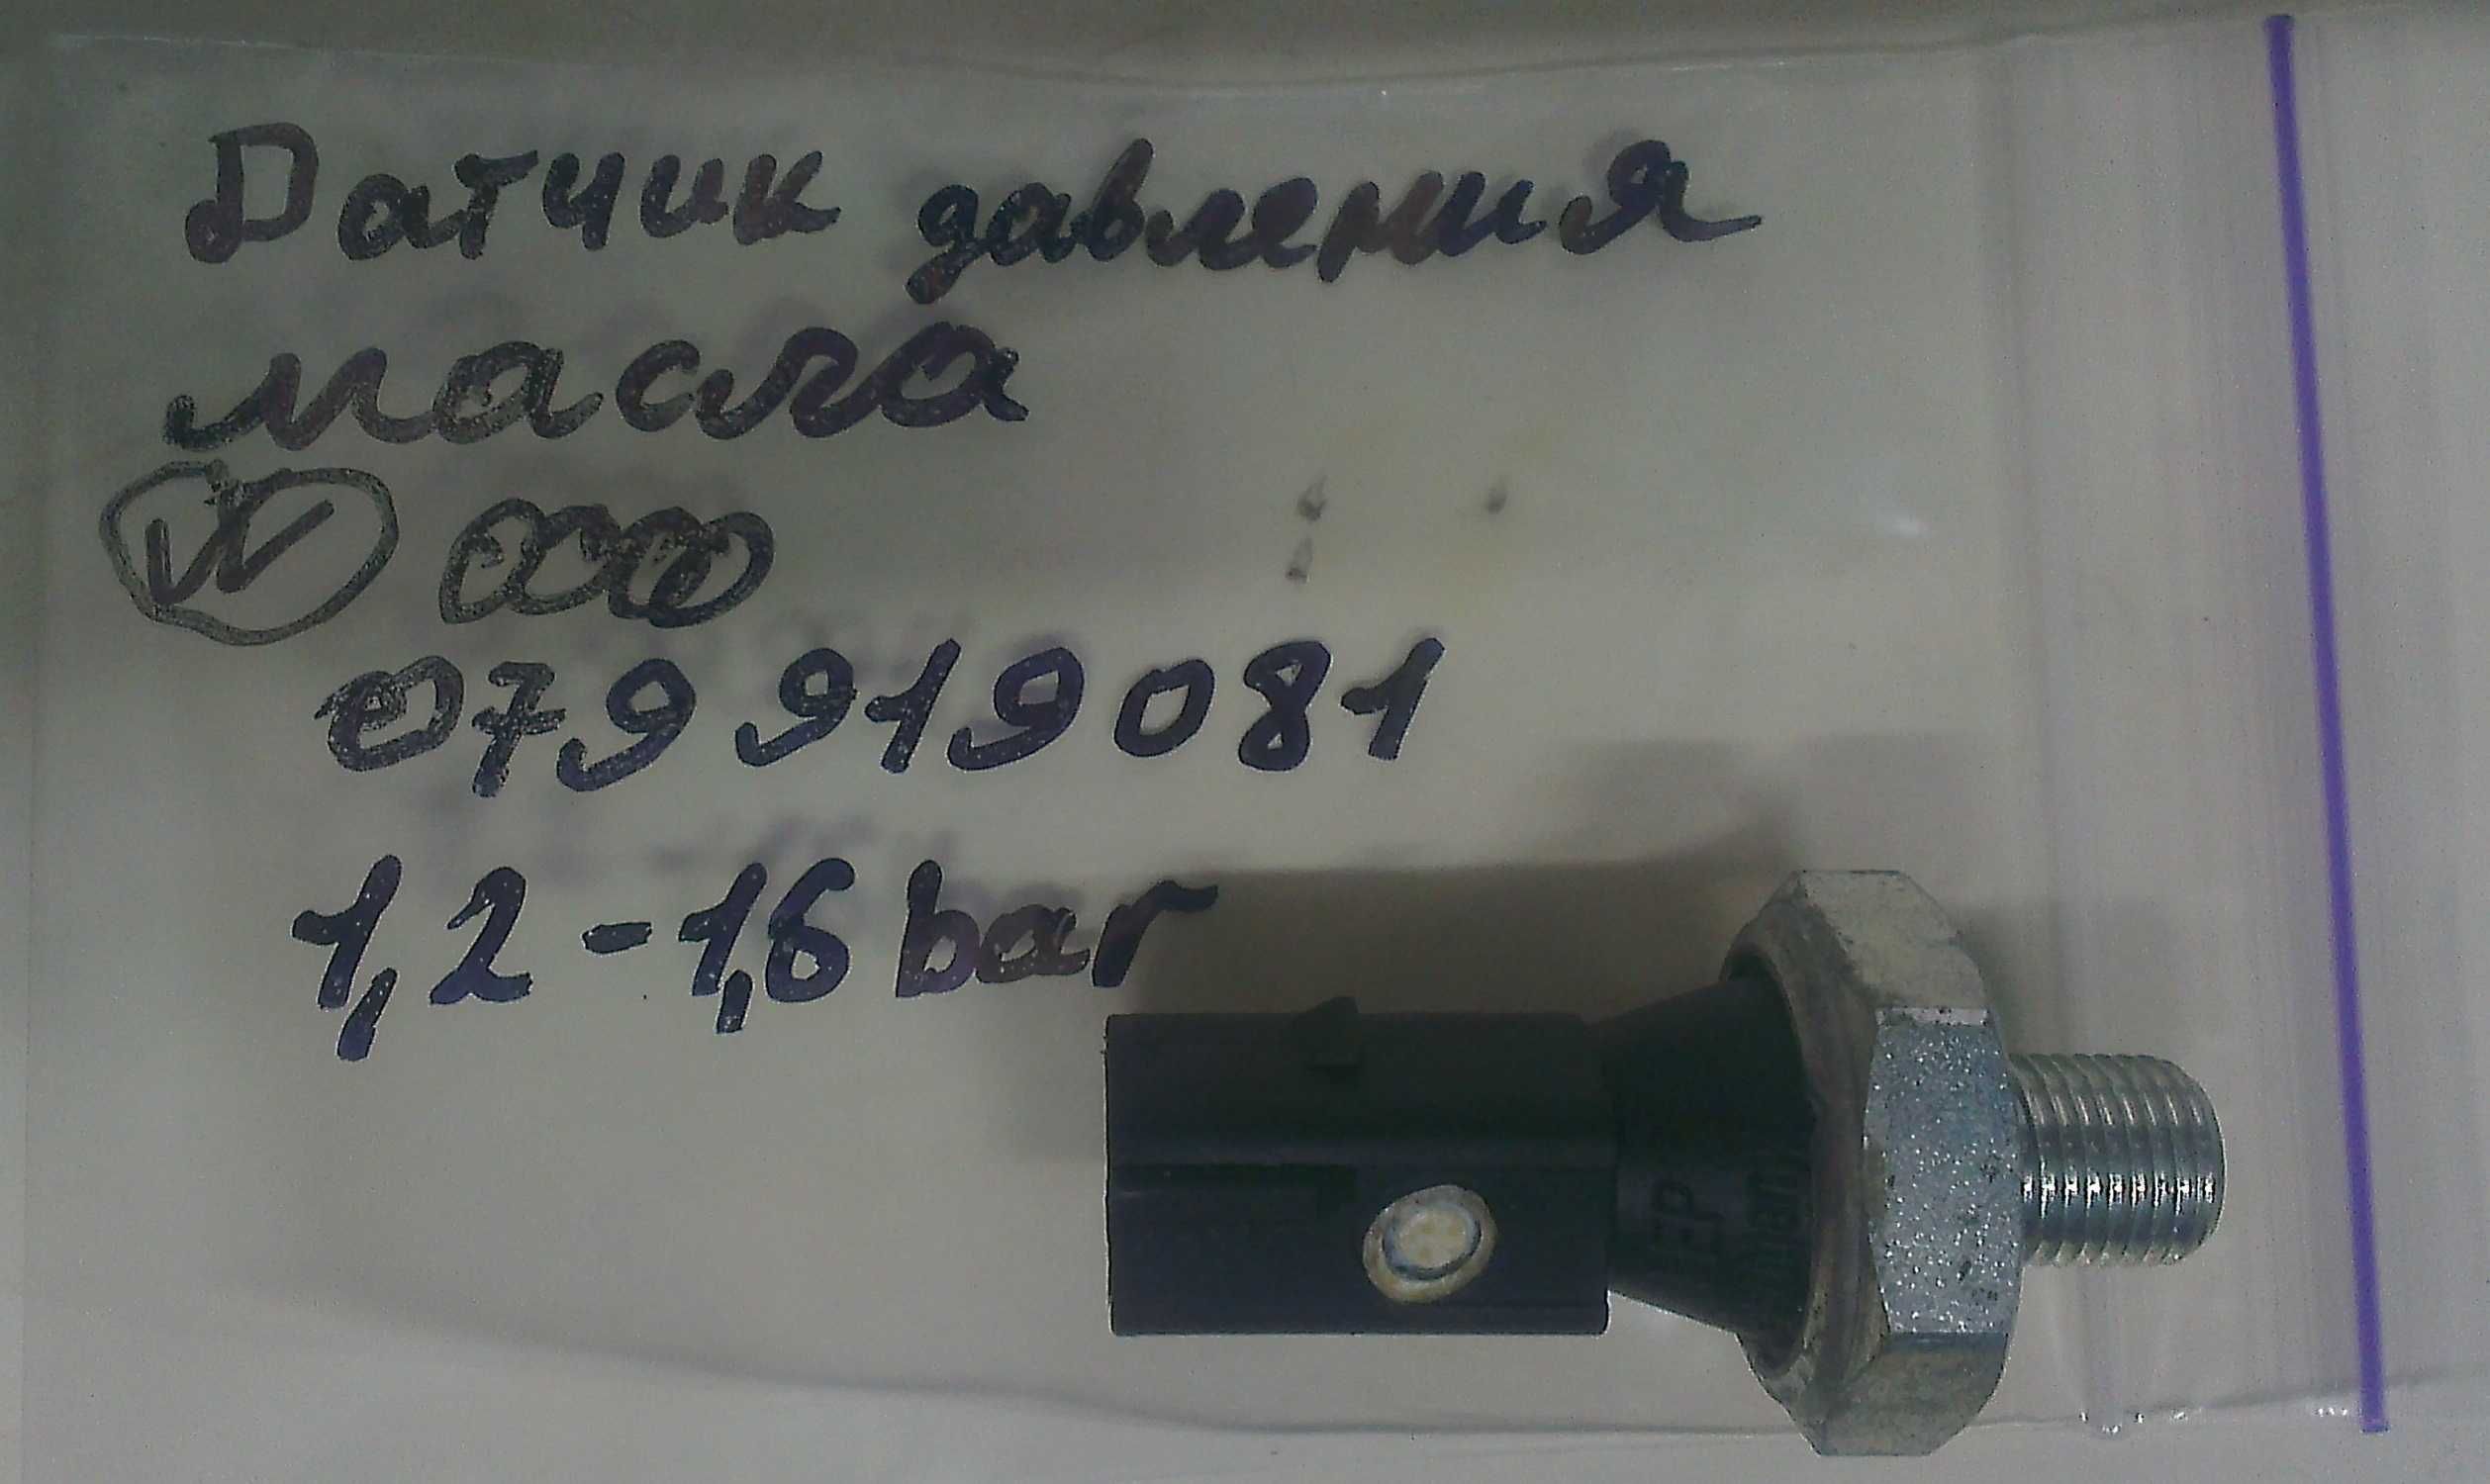 Датчик давления
масла
079 919 081
1,2-1,6 bar
EP